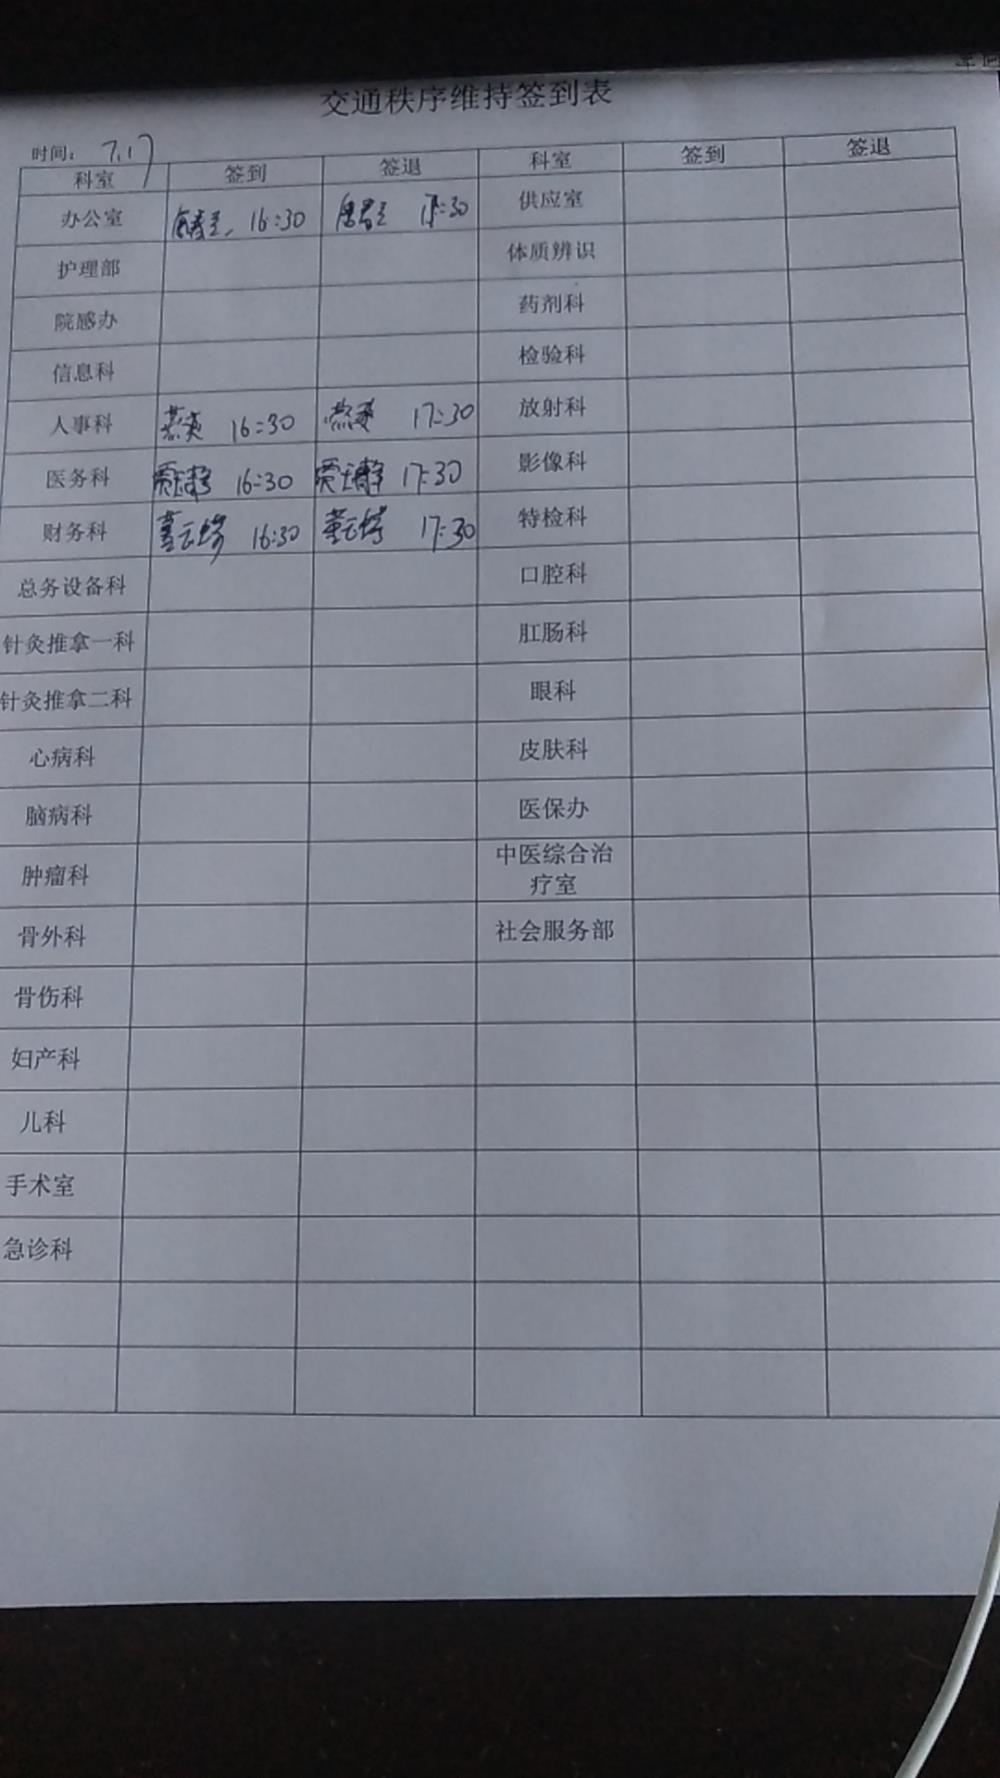 交通秩序维持签到表
时间: 7.17
科室 签到 签退 科室 签到 签退
办公室 16:30 17:30 供应室
护理部 体质辨识
院感办 药剂科
信息科 检验科
人事科 16:30 17:30 放射科
医务科 16:30 17:30 影像科
财务科 16:30 17:30 特检科
总务设备科 口腔科
针灸推拿一科 肛肠科
针灸推拿二科 眼科
心病科 皮肤科
脑病科 医保办
肿瘤科 中医综合治疗室
骨外科 社会服务部
骨伤科
妇产科
儿科
手术室
急诊科